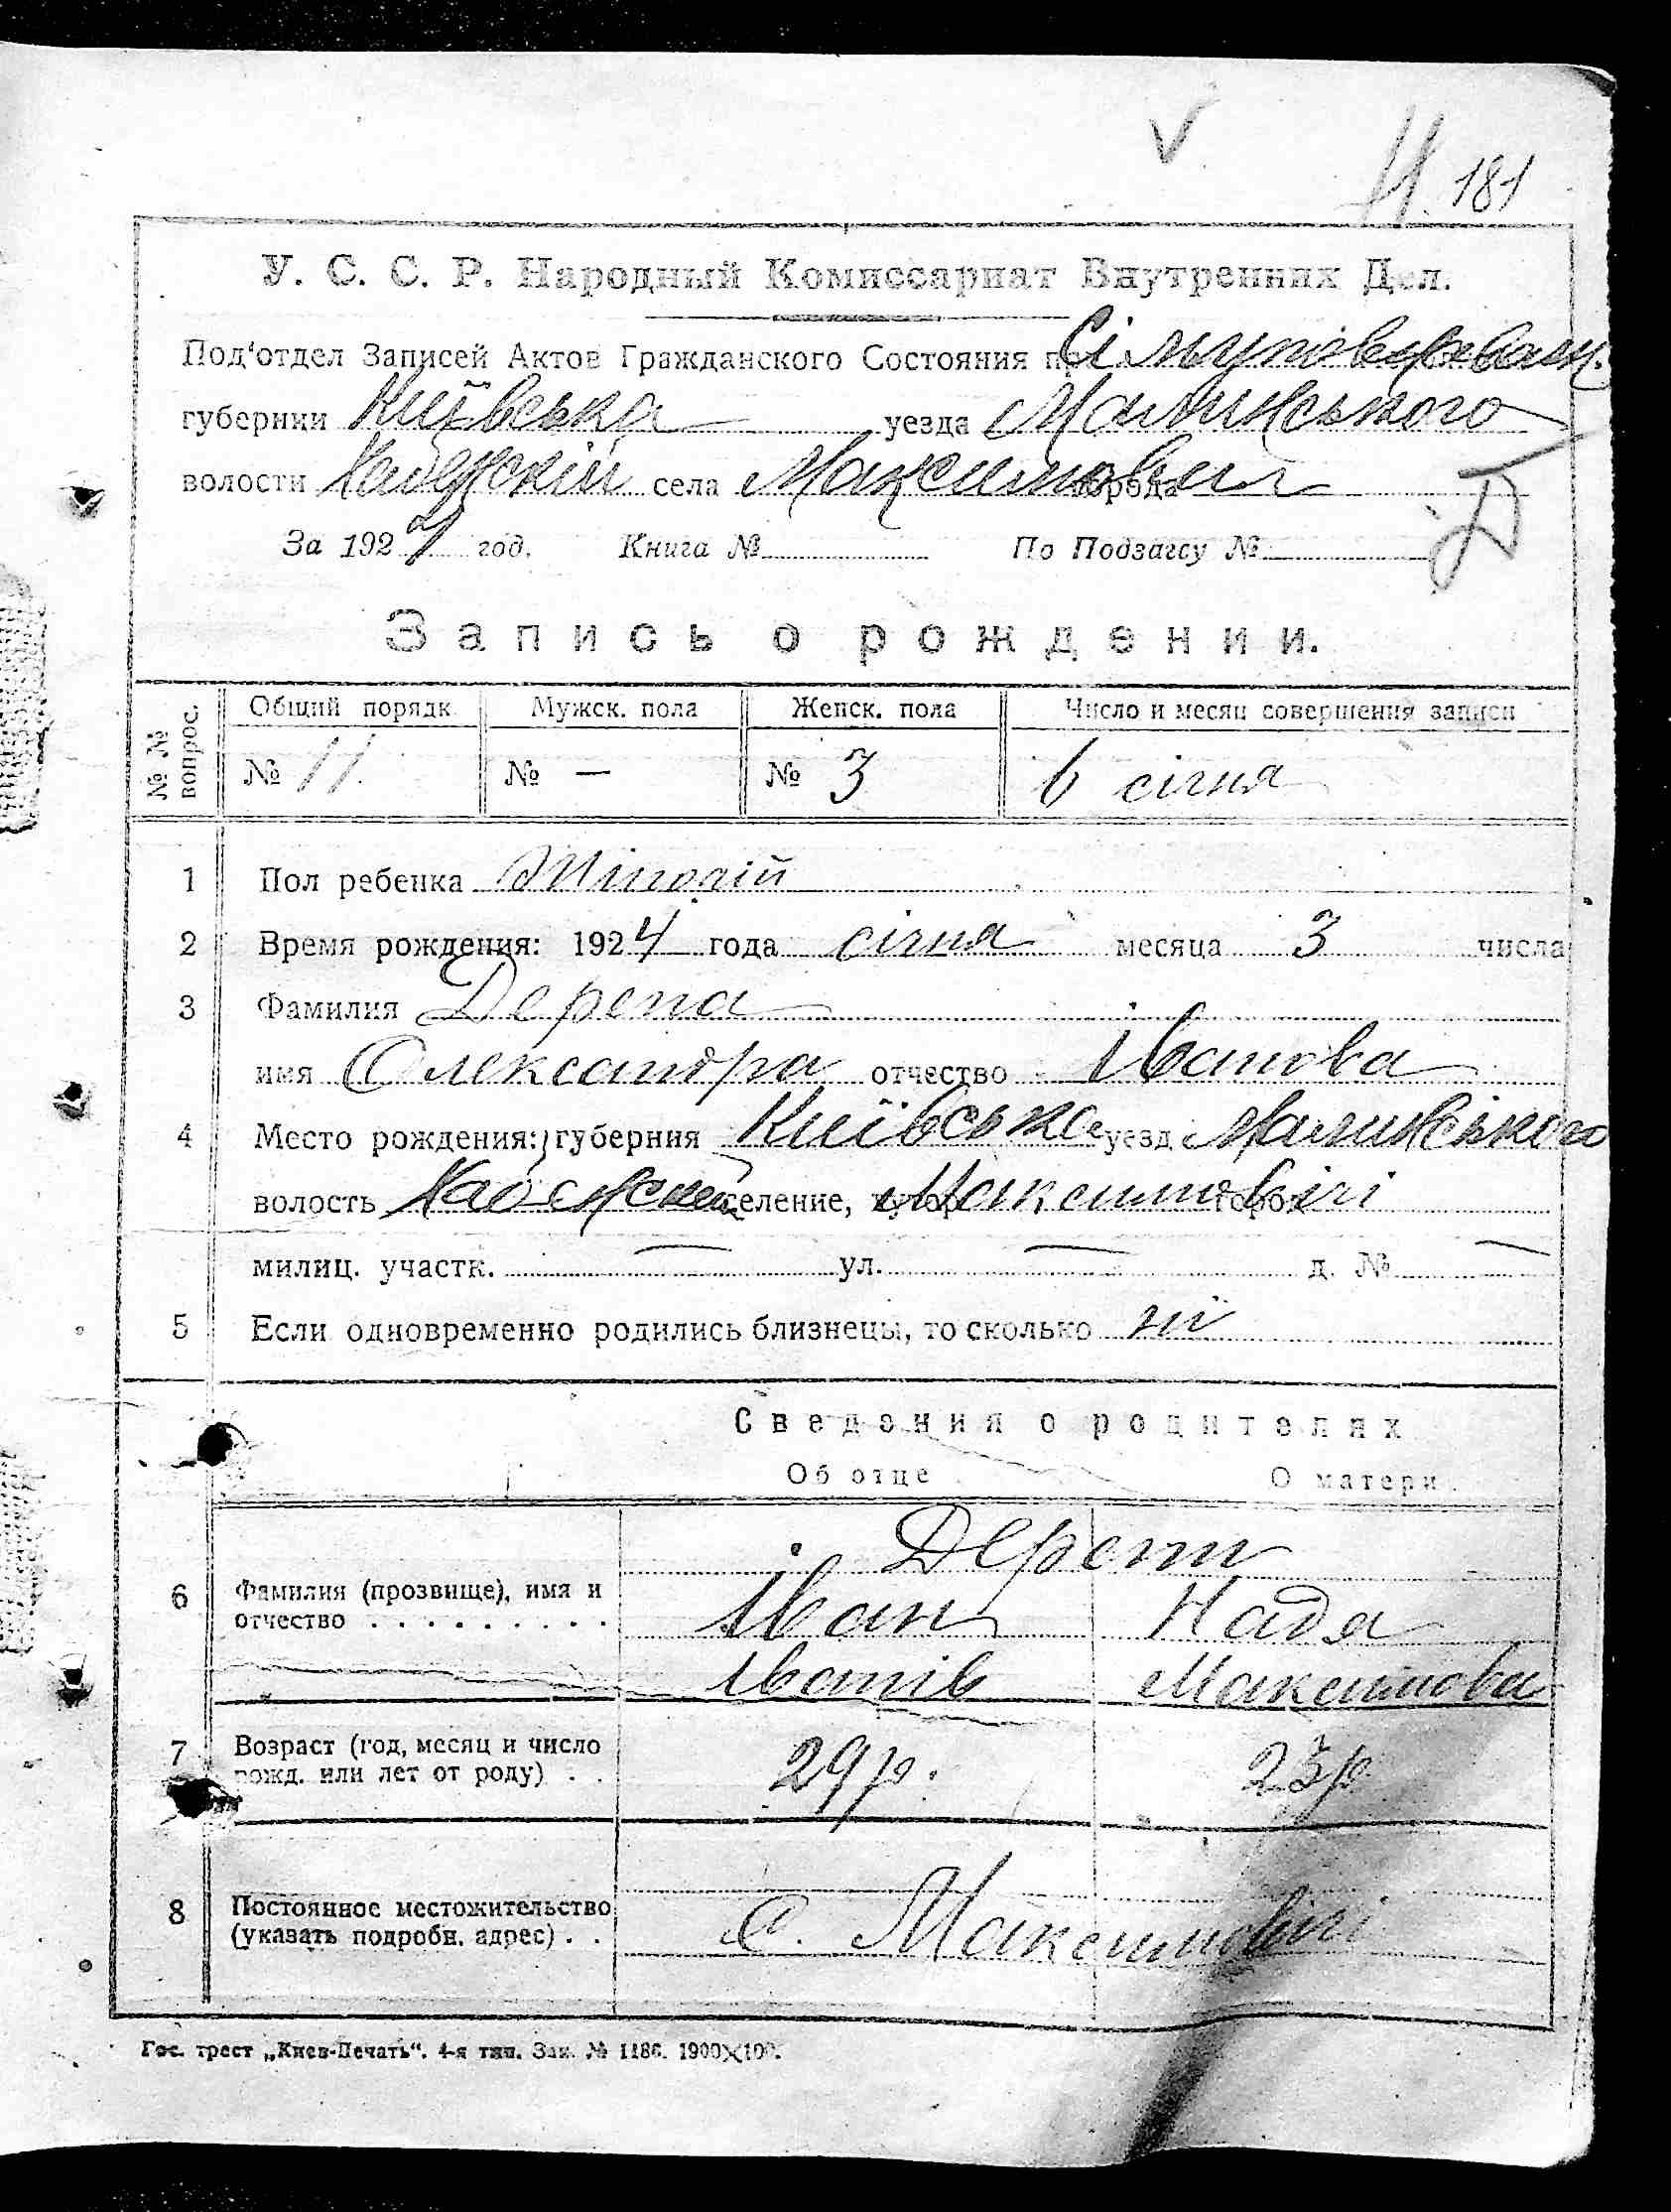 V
Ч. 181
У. С. С. Р. Народный Комиссариат Внутренних Дел.
Под'отдел Записей Актов Гражданского Состояния при
губернии Київська уезда Малинського
волости села Максимовичі города
За 192 год. Книга № По Подзагсу №
Д
Запись о рождении.
№ № вопрос. Общий порядк. Мужск. пола Женск. пола Число и месяц совершения записи
№ 11. № — № 3 6 січня
1 Пол ребенка Жіночій
2 Время рождения: 1924 года січня месяца 3 числа
3 Фамилия Дерепа
имя Олександра отчество Іванова
4 Место рождения: губерния Київська уезд Малинського
волость селение, хутор Максимовичі город
милиц. участк. — ул. — д. № —
5 Если одновременно родились близнецы, то сколько ні
Сведения о родителях
Об отце О матери
Дерепи
6 Фамилия (прозвище), имя и отчество . . . . . . . . . Іван Надя
Іванів Максимова
7 Возраст (год, месяц и число рожд. или лет от роду) . . 29 р. 23 р.
8 Постоянное местожительство (указать подробн. адрес) . . С. Максимовичі
Гос. трест „Киев-Печать“. 4-я тип. Зак. № 1186. 1900×100.